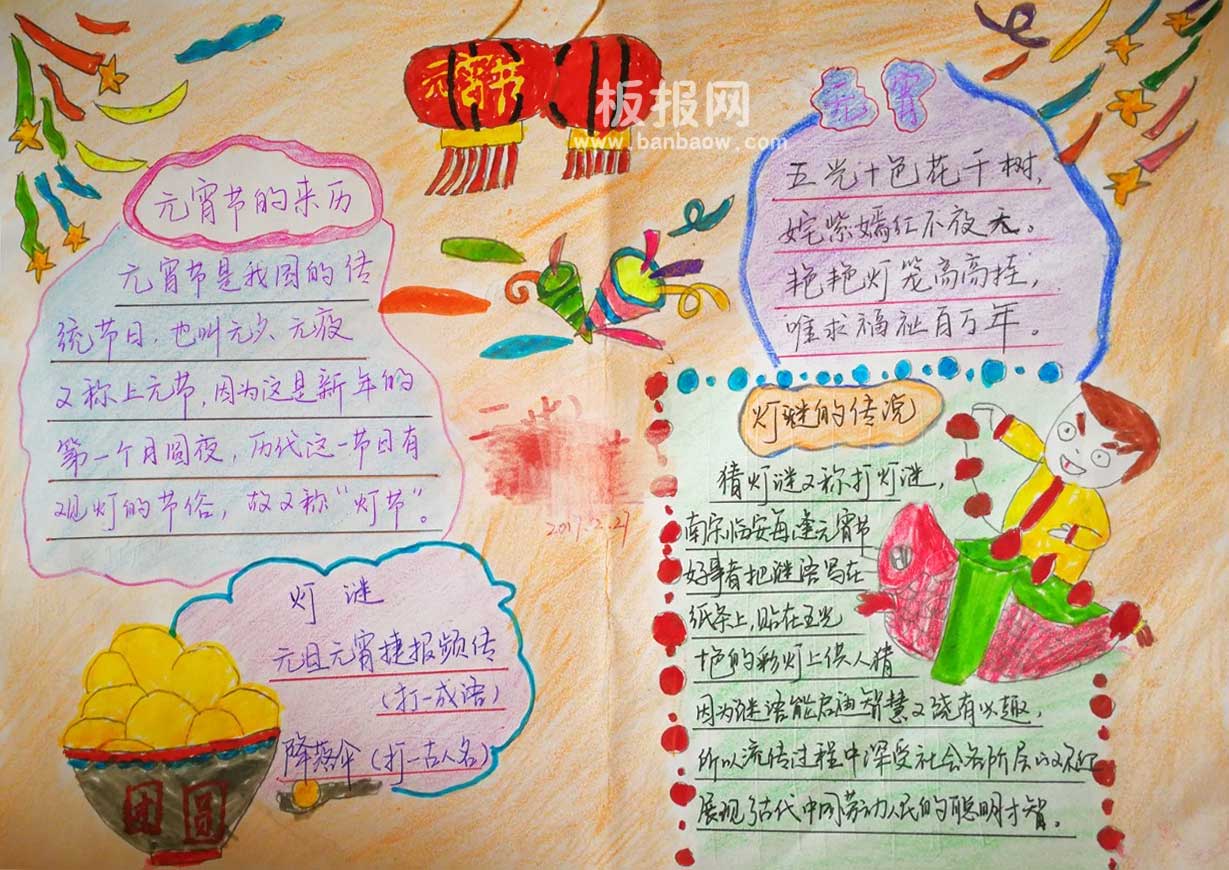 元宵节
板报网
www.banbaow.com
元宵节的来历
元宵节是我国的传
统节日，也叫元夕、元夜
又称上元节，因为这是新年的
第一个月圆夜，历代这一节日有
观灯的节俗，故又称“灯节”。
灯谜
元旦元宵捷报频传
（打一成语）
降落伞（打一古人名）
团圆
2017.2.27
元宵
五光十色花千树，
姹紫嫣红不夜天。
艳艳灯笼高高挂，
唯求福祉百万年。
灯谜的传说
猜灯谜又称打灯谜，
南宋临安每逢元宵节
好事者把谜语写在
纸条上，贴在五光
十色的彩灯上供人猜
因为谜语能启迪智慧又饶有兴趣，
所以流传过程中深受社会各阶层的欢迎
展现了古代中国劳动人民的聪明才智。